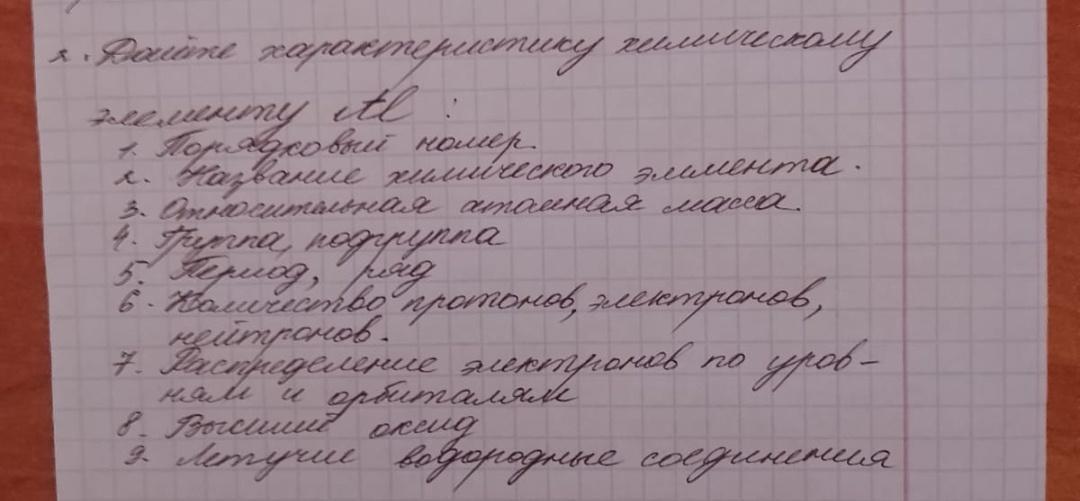 2. Дайте характеристику химическому
элементу Al :
1. Порядковый номер.
2. Название химического элемента.
3. Относительная атомная масса.
4. Группа, подгруппа
5. Период, ряд
6. Количество протонов, электронов,
нейтронов.
7. Распределение электронов по уров-
ням и орбиталям
8. Высший оксид
9. Летучие водородные соединения